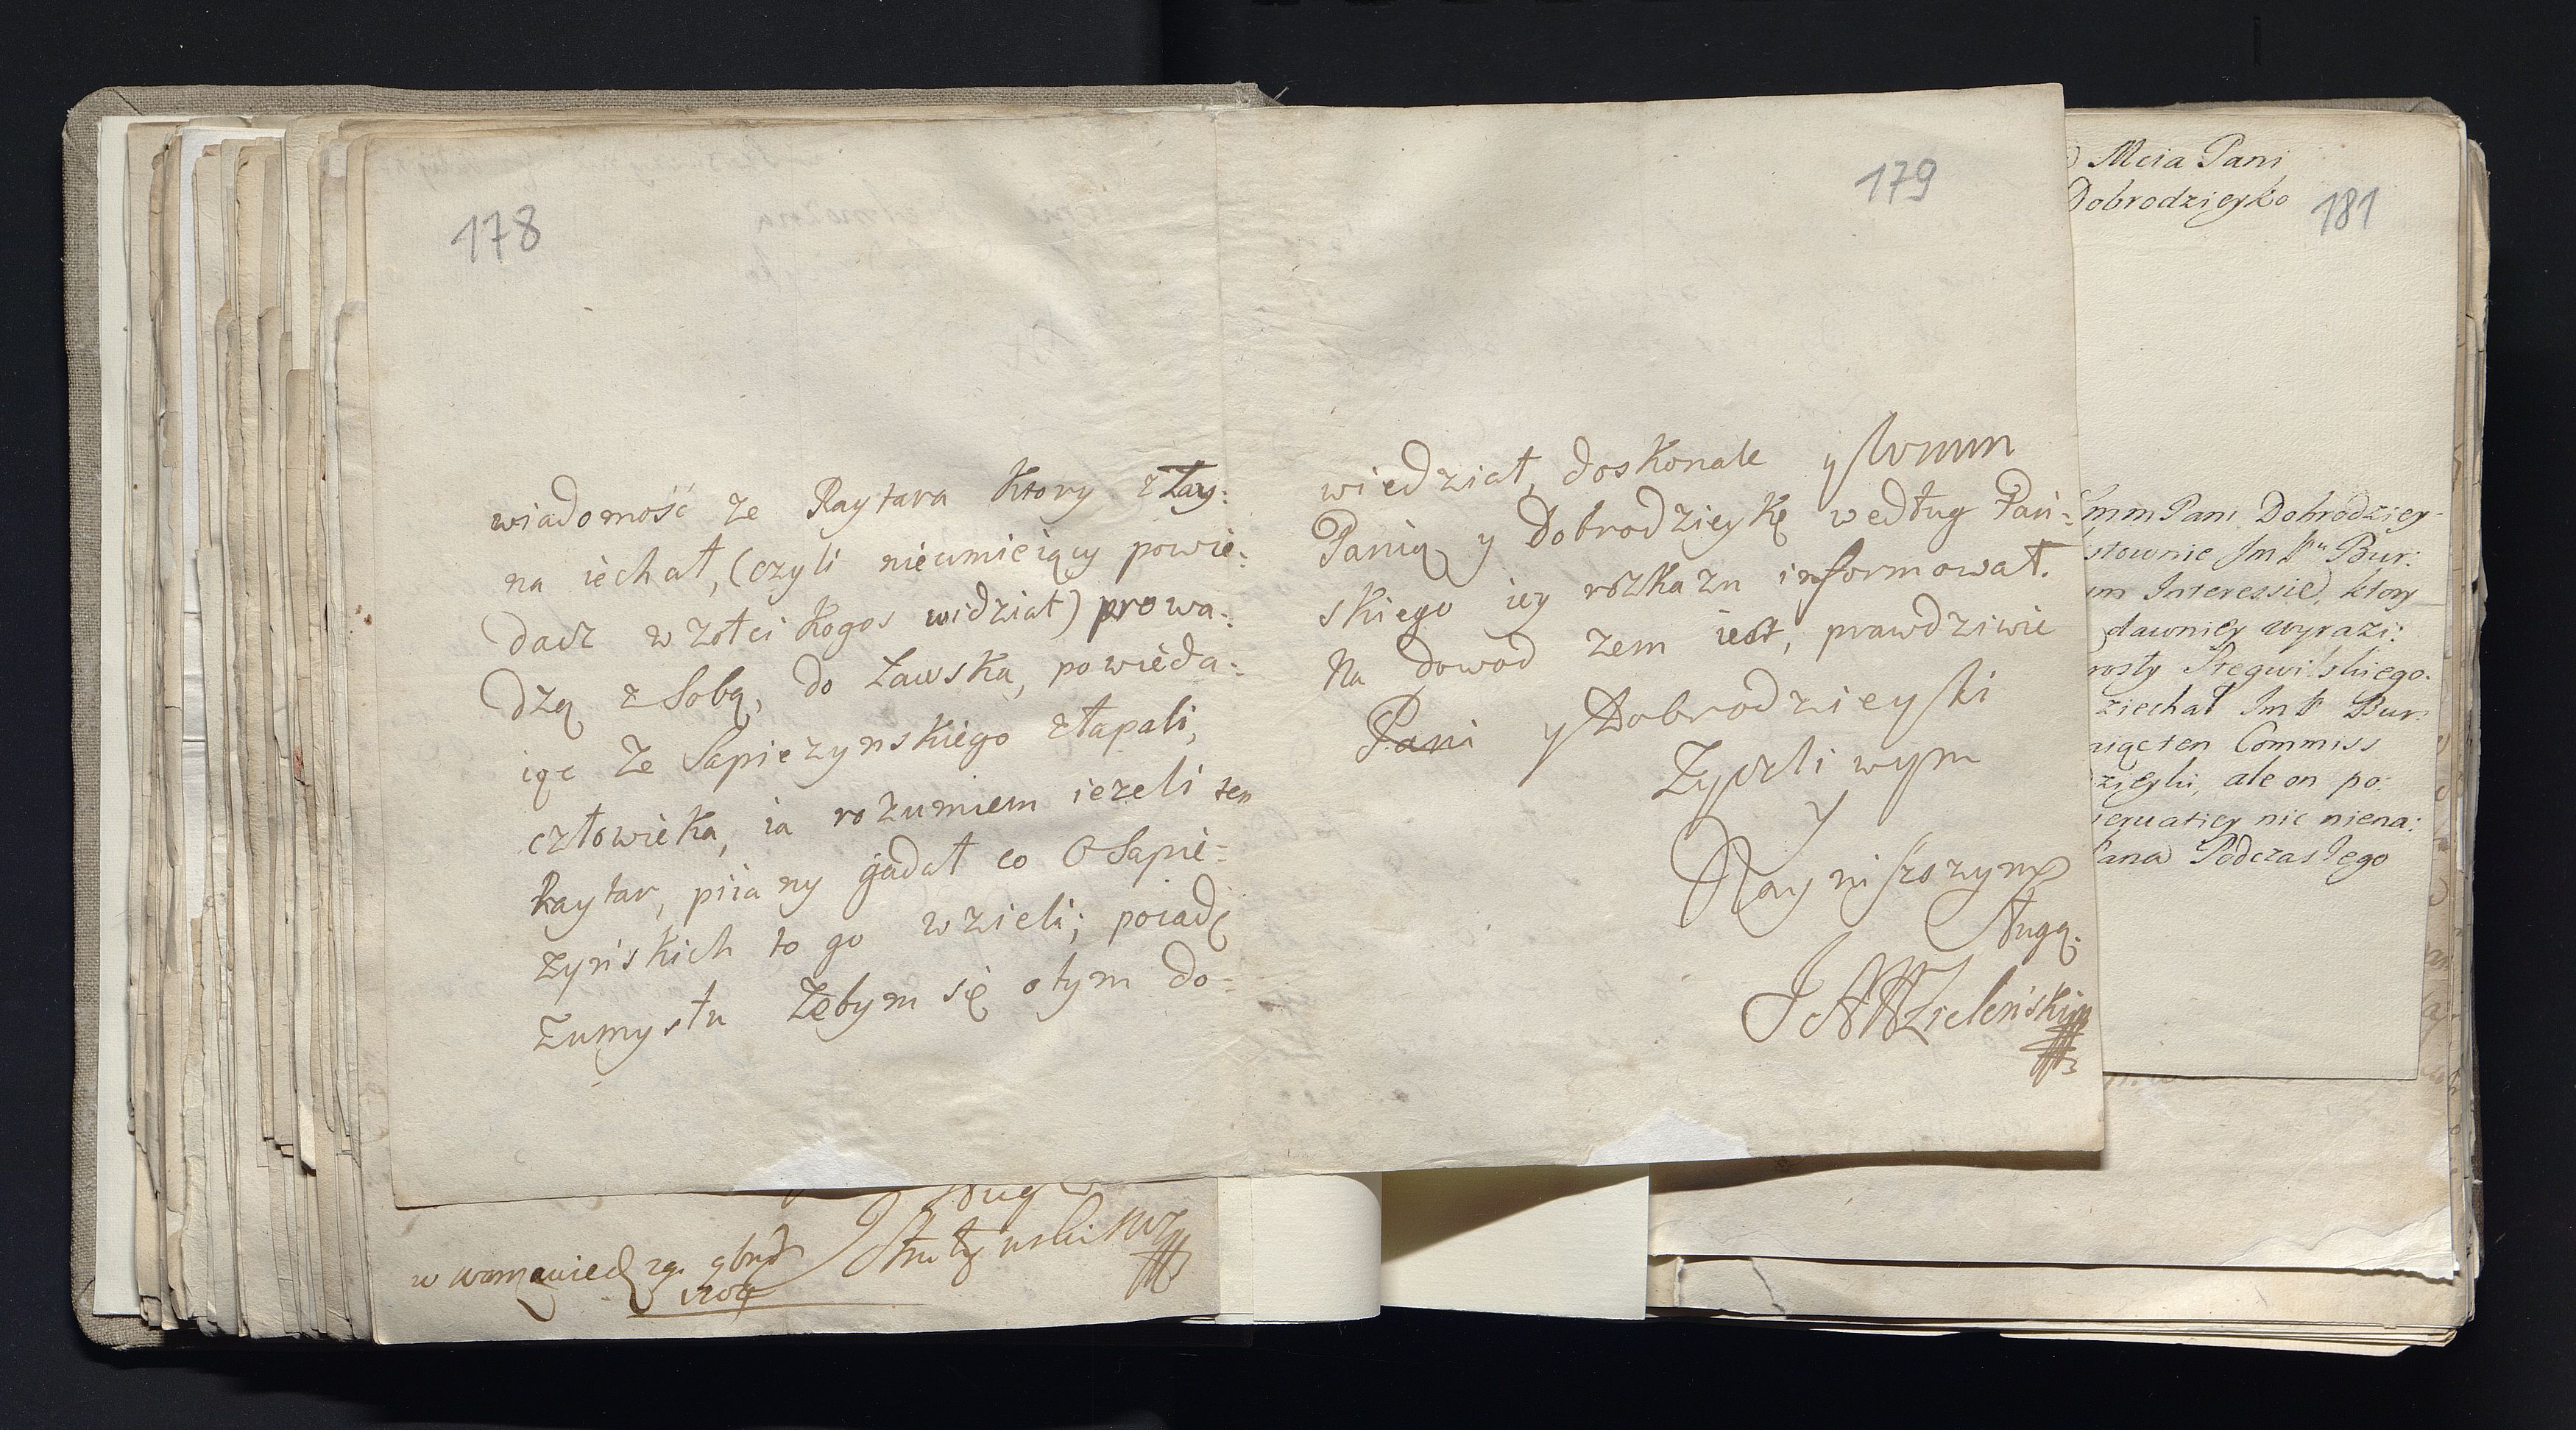 178
wiadomość że Raytara Ktory z Łazy:
na iechał, (czyli nieumieiący powie:
dacz w żołci kogos widział) prowa:
dzą z Sobą, do Ławska, powieda:
iąc że Sapieżynskiego złapali,
człowieka, ia rozumiem ieżeli ten
Raytar, piiany gadał co O Sapie=
żyńskich to go wzieli; poiadę
Zumysłu żebym się otym do=
179
wiedział, doskonale y
Panią y Dobrodzieykę według Pań=
skiego iey rozkazu informował.
Na dowod żem iest, prawdziwie
Pani y Dobrodzieyki
Zyczliwym
y
Nayniszszym
sługą.
Zieleński
w
Mcia Pani
Dobrodzieyko
181
Pani Dobrodziey-
stownie Im Pn Bur:
Interessie, ktory
dawniey wyrazi:
rosty Stegwilskiego.
ziechał Im P Bur:
niąc ten Commiss
zieyki, ale on po:
nic niena:
Pana Podczaszego